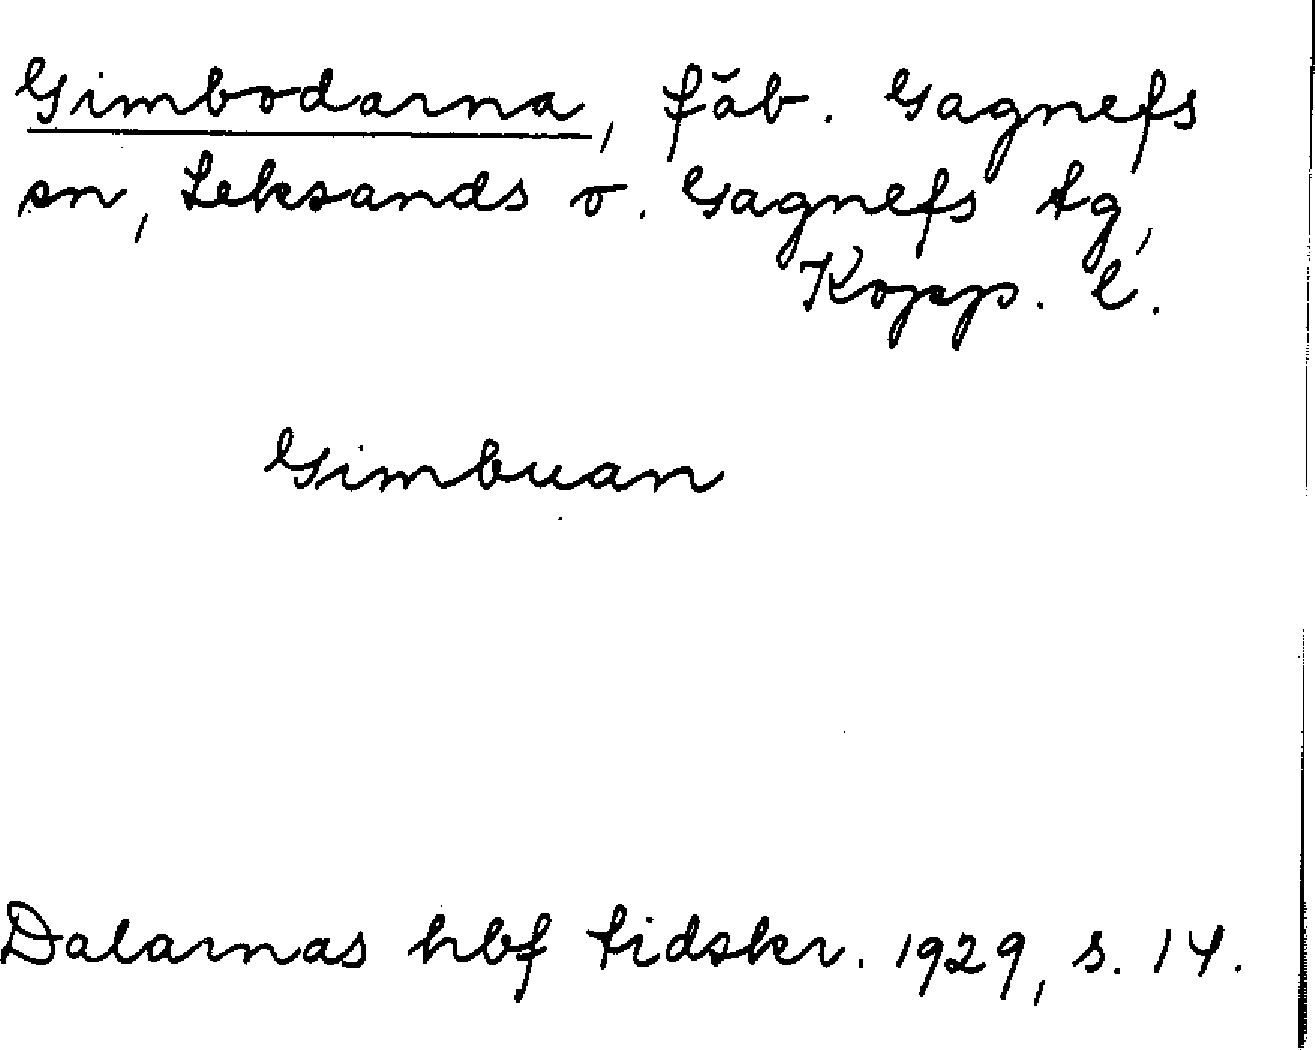 Gimbodarna, fäb. Gagnefs
sn, Leksands o. Gagnefs tg,
Kopp. l.
Gimbuan
Dalarnas hbf tidskr. 1929, s. 14.